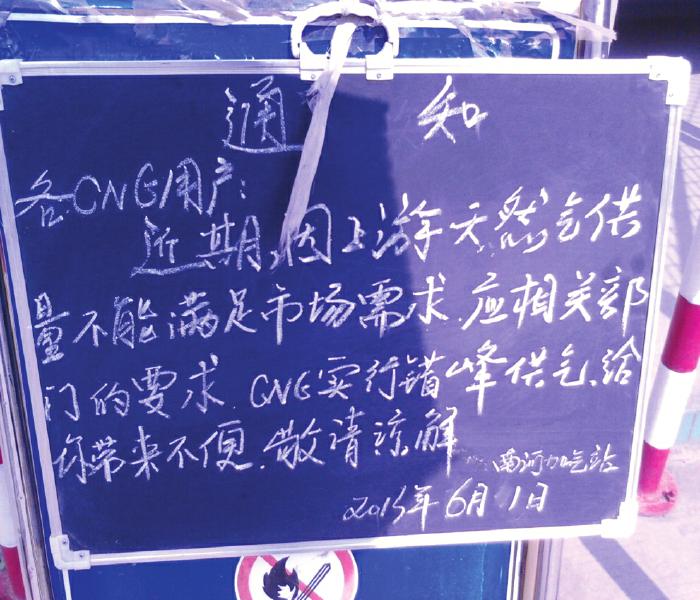 通知
各CNG用户:
近期,因上游天然气供
量不能满足市场需求.应相关部
门的要求.CNG实行错峰供气.给
你带来不便.敬请谅解
南河加气站
2015年6月1日